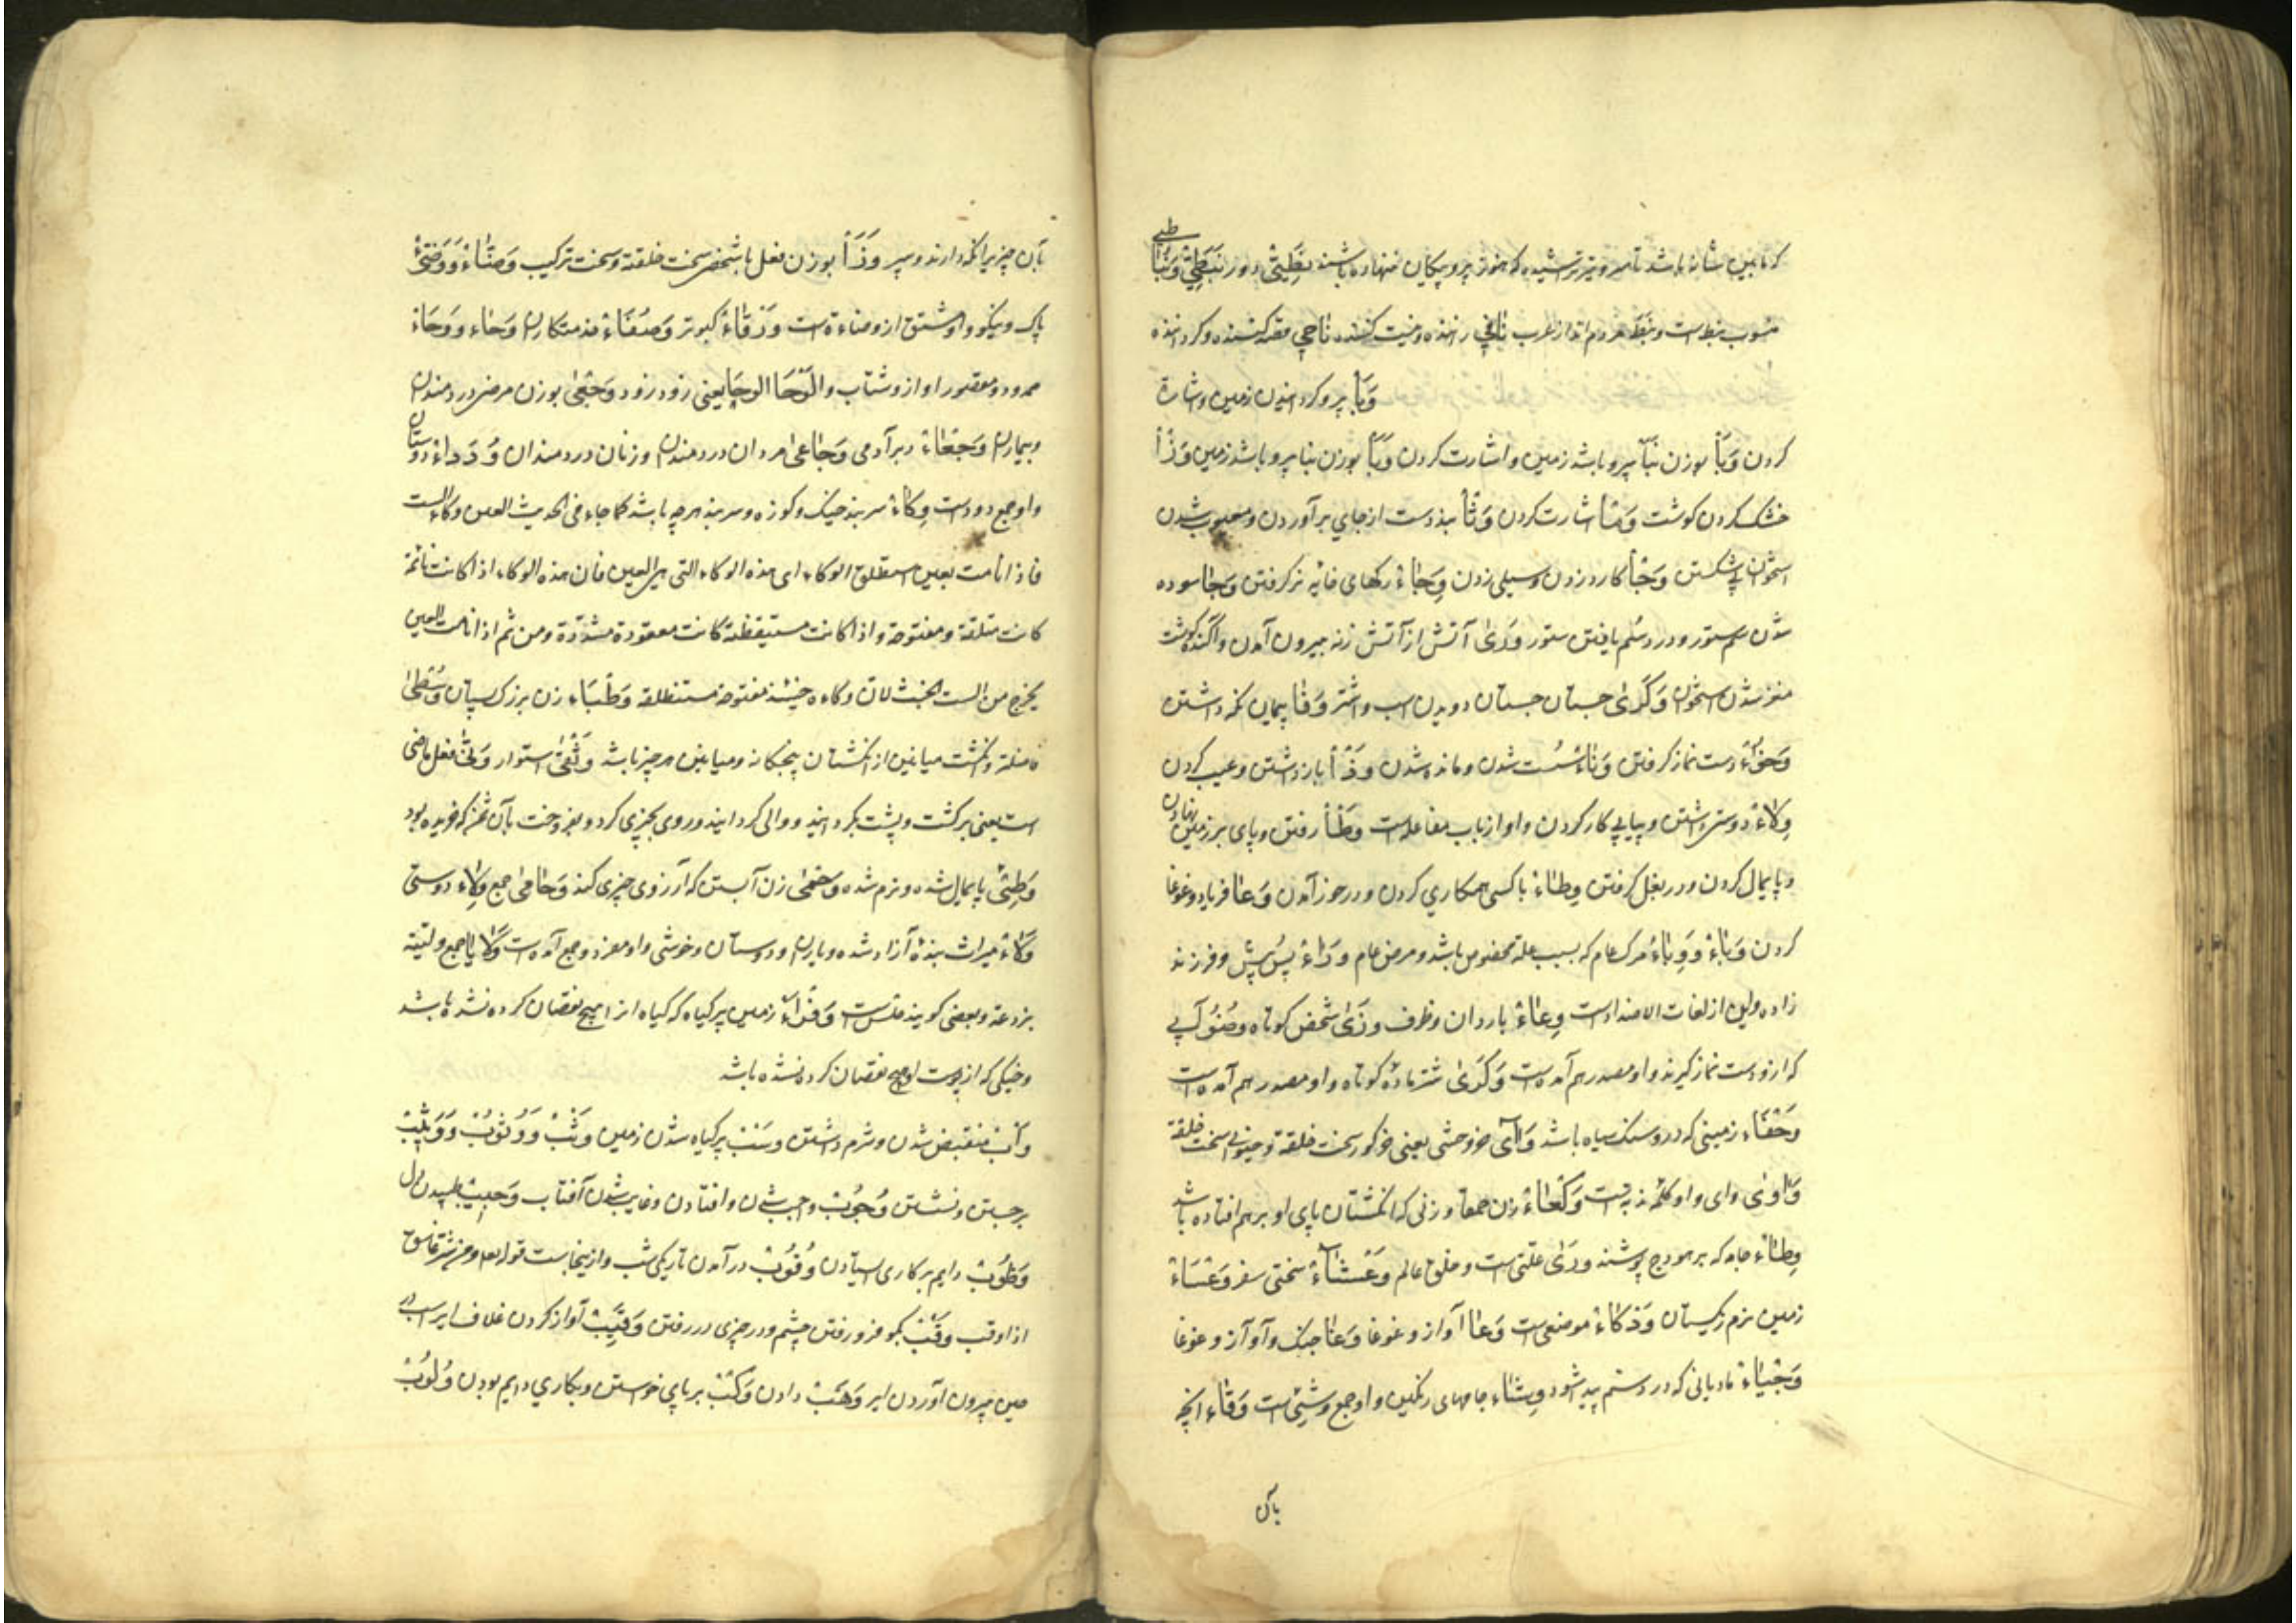 که مابین شانه باشد تا سر و تیر تراشیده که هنوز پر و پیکان ننهاده باشند نَطِیتی دور نَبَطِیّ وَنَبَا طی
منسوب بنبط است ونَبَط مردم اند از عرب ناخی رانده ونیت کننده ناجی قصد کننده وگرداننده
وَبَأ پر وکردانیدن زمین واشارة
کردن وَبَأ بوزن نبأ پر وبا شدن زمین واشارت کردن وَبَأ بوزن بنا پر وبا شدن زمین وَذْأ
خشک کردن گوشت وَمَا اشارت کردن وَثَأ بند دست از جای برآوردن ومعیوب شدن
استخوان بی شکستن وَجَأ کارد زدن وسیلی زدن وِجَاء رکهای خایه نر گرفتن وَجَا سوده
شدن سم ستور ودرد سُم یافتن ستور وَرَیٰ آتش از آتش زنه بیرون آمدن واگنده گوشت
مغز شدن استخوان وَکَرَیٰ جستان جستان دویدن اسب واشتر وَفَا پیمان نگه داشتن
وُضُوْء دست نماز گرفتن وَنَاءْ سُست شدن ومانده شدن وَذْأ بازداشتن وعیب کردن
وِلَاءْ دوستی داشتن وپیاپی کار کردن واو از باب مفاعله است وَطْأ رفتن وپای بر زمین نهادن
وپایمال کردن ودر بغل گرفتن وِطَاءْ باکسی همکاری کردن ودر خور آمدن وَعَا فریاد وغوغا
کردن وَبَاءْ وَوِبَاءُ مرگ عام که بسبب علة مخصوص باشد ومرض عام وَرَاءْ پس پیش وفرزند
زاده واین از لغات الاضداد است وِعَاءْ باردان وظرف وَزَیٰ شخص کوتاه وَضُوْ آبی
که ازو دست نماز گیرند واو مصدر هم آمده است وَکَرَیٰ شتر ماده کوتاه واو مصدر هم آمده است
وَحْفَاء زمینی که درو سنگ سیاه باشد وَاآی خر وحشی یعنی خر گور سخت خلقة وحیوانی سخت خلقة
وَا وَیٰ وای واو کلمه ندبه است وَکْعَاءْ زن حمقا وزنی که انگشتان پای او برهم افتاده باشد
وِطَاء جامه که بر هودج پوشند وَرَیٰ علتی است وخلق عالم وَعْثَاءْ سختی سفر وَعْسَاءْ
زمین نرم ریگستان وَذکَاءْ موضعی است وَعَا آواز وغوغا وَغَا جنگ وآواز وغوغا
وَجْیَاءْ مادیانی که در دستم پیدا شود وِشَاء جامهای رنگین واو جمع وَشْیٌ است وَقَاء انچه
بآن
بآن چیزیرا نگه دارند وسپر وَزَأ بوزن فعل باشخص سخت خلقة وسخت ترکیب وَضَّاءْ وَوَضِیءْ
پاک ونیکو واو مشتق از وضاءة است وَرْقَاءْ کبوتر وُصَفَاءْ خدمتکاران وَحَاء ووَحَاءْ
ممدود ومقصور آواز وشتاب والوَحَا الوحَا یعنی زود زود وَجْعَیٰ بوزن مرضی دردمندان
وبیماران وَجْعَاءْ دبر آدمی وَجَاعَیٰ مردان دردمندان وزنان دردمندان وُدَدَاءْ دوستان
واو جمع ودود است وِکَاءْ سربند خیک وکوزه وسربند هر چه باشد کما جاء فی الحدیث العین وکاء الست
فاذا نامت العین استطلق الوکاء ای هذه الوکاء التی هی العین فان هذه الوکاء اذا کانت نائمة
کانت منطلقة ومفتوحة واذا کانت مستیقظة کانت معقودة مشدّدة ومن ثم اذا نامت العین
یخرج من الست الخبث لان وکاءه حینئذ مفتوحة مستنطلقة وَطْبَاء زن بزرگ پستان وُسْطَیٰ
فاضلة وانگشت میانین از انگشتان پنجگانه ومیانین هر چیز باشد وُثْقَیٰ استوار وَلَّیٰ فعل ماضی
است یعنی برگشت وپشت بگردانید ووالی گردانید وروی بچیزی کرد وبفروخت بآن ثمن که خریده بود
وَطِیءْ پایمال شده ونرم شده وَحْمَیٰ زن آبستن که آرزوی چیزی کند وَحَامَیٰ جمع وَلَاء دوستی
وَلَاءْ میراث بندۀ آزاد شده ویاران ودوستان وخوشی واو مفرد وجمع آمده است وَلَایَا جمع ولیّة
بزدعة وبعضی گویند قلس است وَفْرَاءْ زمین پر گیاه که گیاه از او هیچ نقصان کرده نشده باشد
وخیکی که از پوست او هیچ نقصان کرده نشده باشد
وَأْبْ منقبض شدن وشرم داشتن وسَنْب پر گیاه شدن زمین وَثْبْ وَوُثُوبْ وَوَثِیْبْ
برجستن ونشستن وُجُوْبْ واجب شدن وافتادن وغایب شدن آفتاب وَجِیْبْ طپیدن دل
وُظُوْبْ دایم بر کاری ایستادن وُقُوْبْ درآمدن تاریکی شب وازینجاست قوله تعالی ومن شر غاسق
اذا وقب وَقْبْ بگو فرو رفتن چشم ودر چیزی در رفتن وَقِیْبْ آواز کردن غلاف ایر اسب در
حین بیرون آوردن ایر وَهَبْ دادن وَکْبْ بر پای خواستن وبکاری دایم بودن وُلُوْبْ